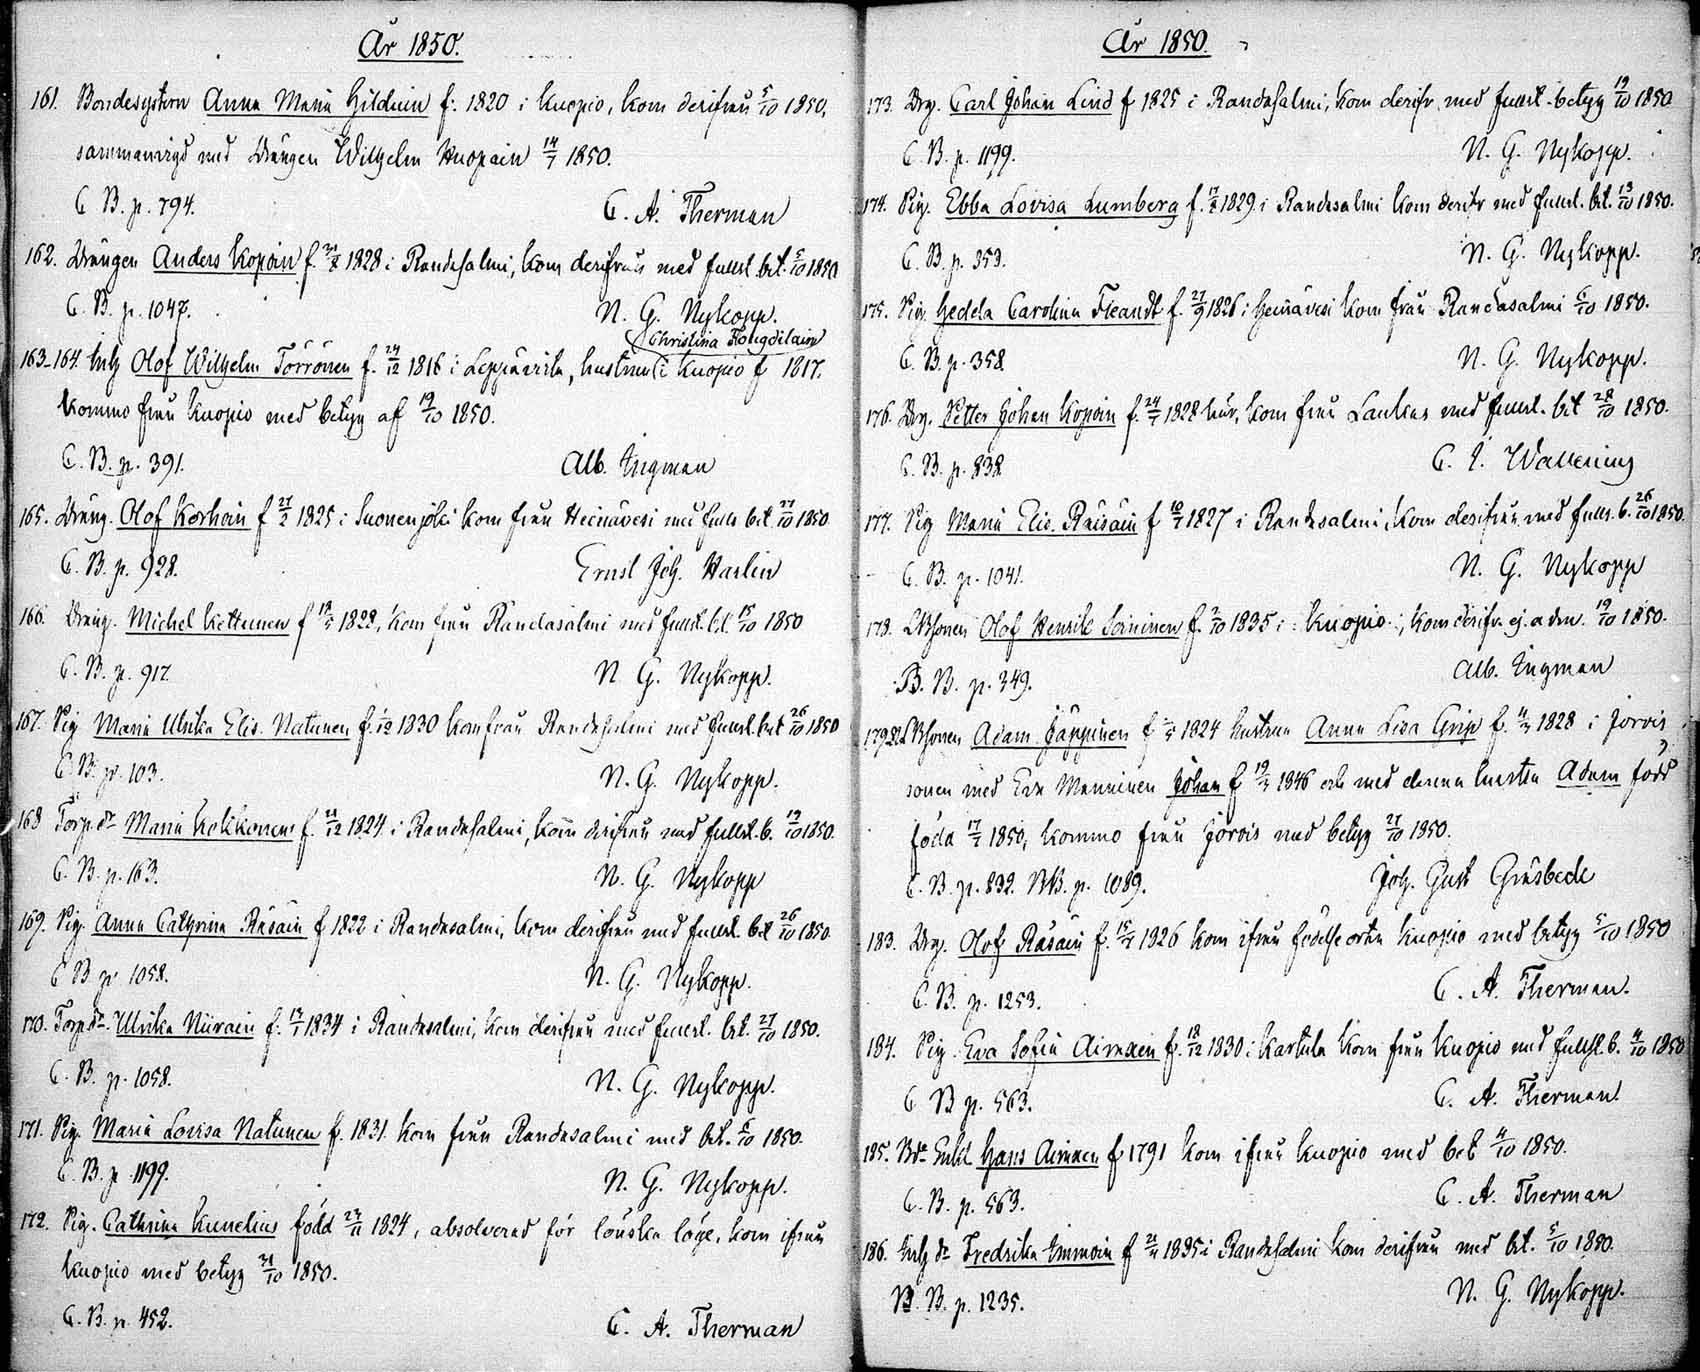 År 1850.
161. Bondesystern Anna Maria Hilduin f. 1820 i Kuopio, kom derifrån 5/10 1850,
sammanvigd med Drängen Wilhelm Knopain 14/7 1850.
C. B. p. 794. C. A. Therman
162. Drängen Anders Kopoin f. 1828 i Randasalmi, kom derifrån med fullst. bet. 5/10 1850
C. B. p. 1047. N. G. Nykopp.
Christina
163-164. Inh Olof Wilhelm Törrönen f. 24/12 1816 i Leppävirta, hustrun i Kuopio f 1817.
kommo från Kuopio med betyg af 19/10 1850.
C. B. p. 391. Alb. Ingman
165. Dräng. Olof Korhoin f 27/2 1825 i Suonenjoki kom från Heinävesi med fulls bet. 27/10 1850
C. B. p. 928. Ernst Joh. Harlin
166. Dräng. Michel Kettunen f 1828, kom från Randasalmi med fullst. bet. 15/10 1850
C. B. p. 917 N. G. Nykopp.
167. Pig Maria Ulrika Elis. Natunen f. 1830 kom från Randasalmi med fullst. bet 26/10 1850
C. B. p. 103. N. G. Nykopp.
168 Torp.dr Maria Kokkonen f. 21/12 1824 i Randasalmi, kom derifrån med fullst. b. 19/10 1850.
C. B. p. 163. N. G. Nykopp
169. Pig. Anna Cathrina Räsäin f 1822 i Randasalmi, kom derifrån med fullst. bet 26/10 1850
C B p. 1058. N. G. Nykopp.
170. Torp.dr. Ulrika Niirain f. 1834 i Randasalmi, kom derifrån med fullst. bet. 27/10 1850.
C. B. p. 1058. N. G. Nykopp.
171. Pig. Maria Lovisa Natunen f. 1831 kom från Randasalmi med bet. 5/10 1850.
C. B. p 1199. N. G. Nykopp.
172. Pig. Cathrina Kunelius född 1824, absolverad för lönska läge, kom ifrån
Kuopio med betyg 31/10 1850.
C. B. p. 452. C. A. Therman
År 1850.
173. Drg. Carl Johan Lind f 1825 i Randasalmi, kom derifr. med fullst. betyg 19/10 1850
C. B. p. 1199. N. G. Nykopp.
174. Pig. Ebba Lovisa Lumberg f. 1829 i Randasalmi kom derifr med fullst. bet. 13/10 1850.
C. B. p. 353. N. G. Nykopp.
175. Pig. Hedda Carolina Fleandt f. 27/9 1826 i Heinävesi kom från Randasalmi 6/10 1850.
C. B. p. 358 N. G. Nykopp.
176. Drg. Petter Johan Kopoin f. 1828 här, kom från Laukas med fullst. bet 28/10 1850.
C. B. p. 838 C. I. Wallenius
177. Pig Maria Elis. Räisäin f 1827 i Randasalmi, kom derifrån med fulls. b. 26/10 1850.
C. B. p. 1041. N. G. Nykopp
178. Olof Henrik Soininen f. 2/10 1835 i Kuopio, kom derifr. ej adm. 19/10 1850.
B. B. p. 349. Alb. Ingman
Adam Jäppinen f 1824 hustrun Anna Lisa Grip f. 1828 i Jorois
sonen med Eva Manninen Johan f 1846 och med denna hustru Adam född
föda 1850, kommo från Jorois med betyg 21/10 1850.
C. B. p. 832. BB. p. 1089. Joh. Gust Gråsbeck
183. Drg. Olof Räsäin f. 1826 kom ifrån födelseorten Kuopio med betyg 5/10 1850
C. B. p. 1253. C. A. Therman.
184. Pig. Eva Sofia Airaxen f. 18/12 1830 i Kartula kom från Kuopio med fullst. b. 4/10 1850
C B p. 563. C. A. Therman.
185. Bde Enkl Hans Airaxen f 1791 kom ifrån Kuopio med bet 4/10 1850.
C. B. p. 563. C. A. Therman
186. Inh dr Fredrika Immoin f 1835 i Randasalmi kom derifrån med bet. 5/10 1850.
B. B. p. 1235. N. G. Nykopp.